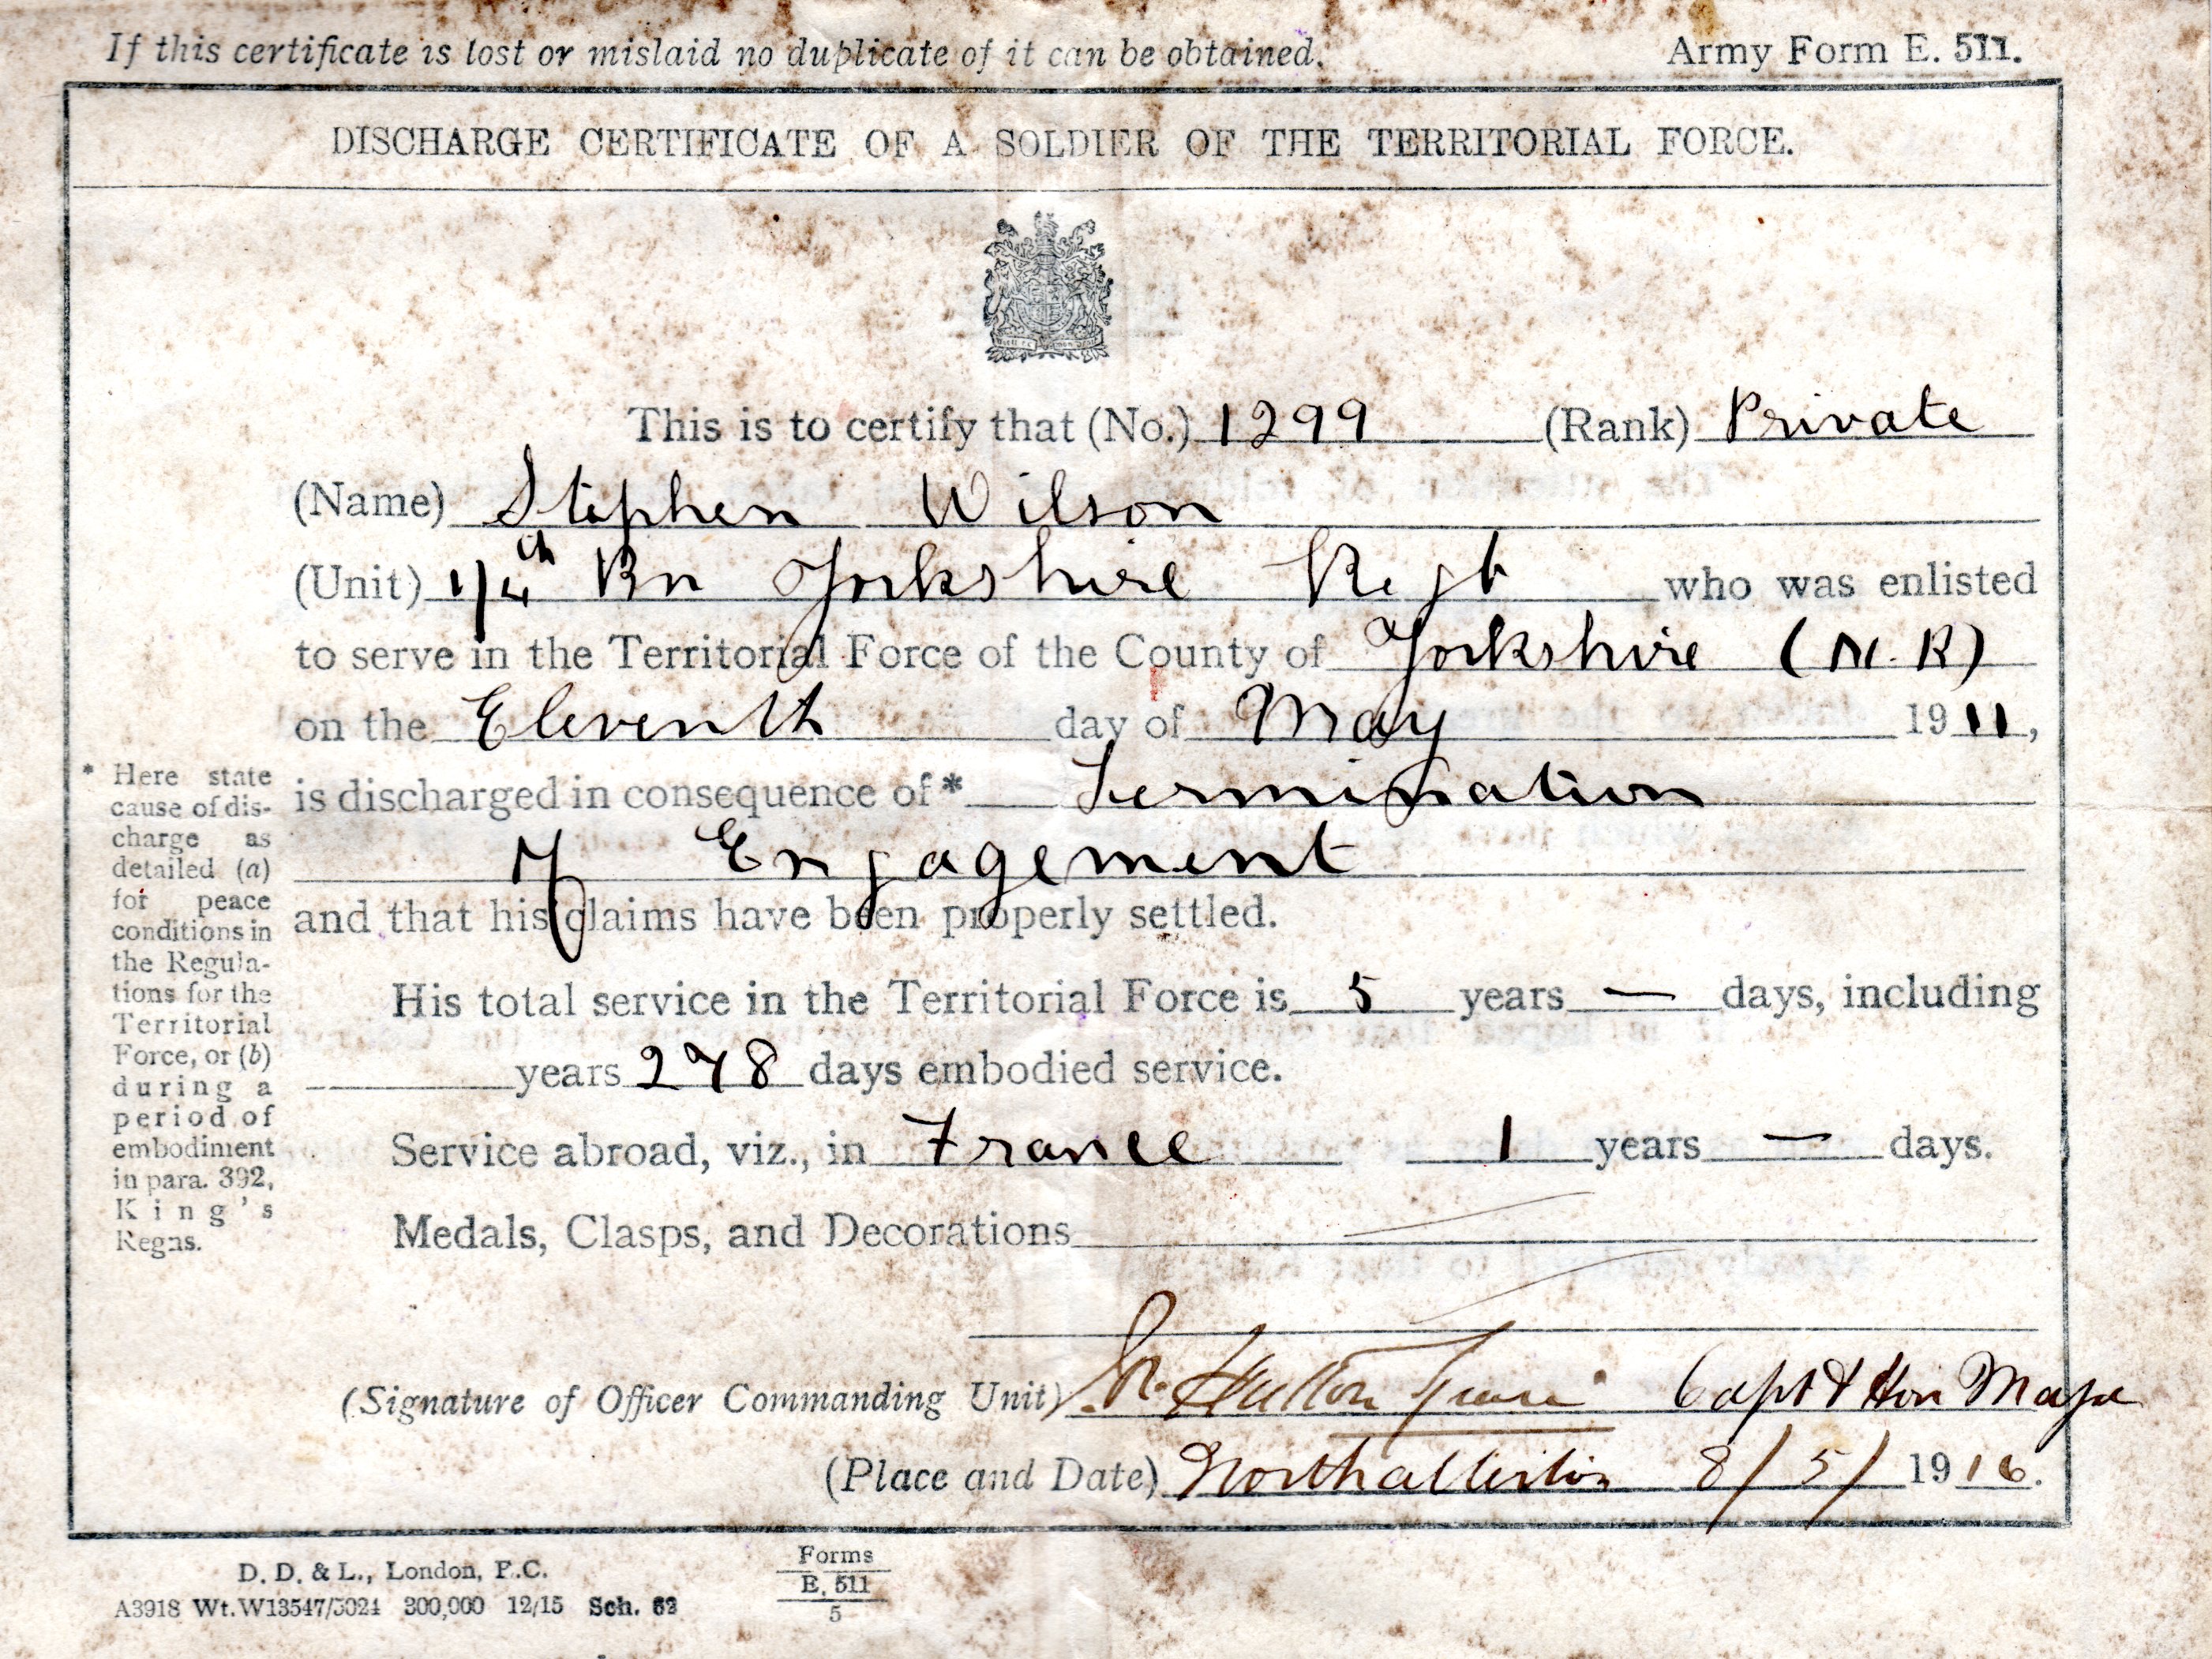 If this certificate is lost or mislaid no duplicate of it can be obtained.
Army Form E. 511.
DISCHARGE CERTIFICATE OF A SOLDIER OF THE TERRITORIAL FORCE.
This is to certify that (No.) 1299 (Rank) Private
(Name) Stephen Wilson
(Unit) 1/4th Bn Yorkshire Regt who was enlisted
to serve in the Territorial Force of the County of Yorkshire (N.R)
on the Eleventh day of May 1911,
is discharged in consequence of * Termination
of Engagement
and that his claims have been properly settled.
His total service in the Territorial Force is 5 years — days, including
years 278 days embodied service.
Service abroad, viz., in France 1 years — days.
Medals, Clasps, and Decorations
(Signature of Officer Commanding Unit) Hutton Capt & Hon Major
(Place and Date) Northallerton 8/5/1916.
* Here state
cause of dis-
charge as
detailed (a)
for peace
conditions in
the Regula-
tions for the
Territorial
Force, or (b)
during a
period of
embodiment
in para. 392,
King's
Regns.
D. D. & L., London, E.C.
A3918 Wt.W13547/3024 300,000 12/15 Sch. 62
Forms
E. 511
5